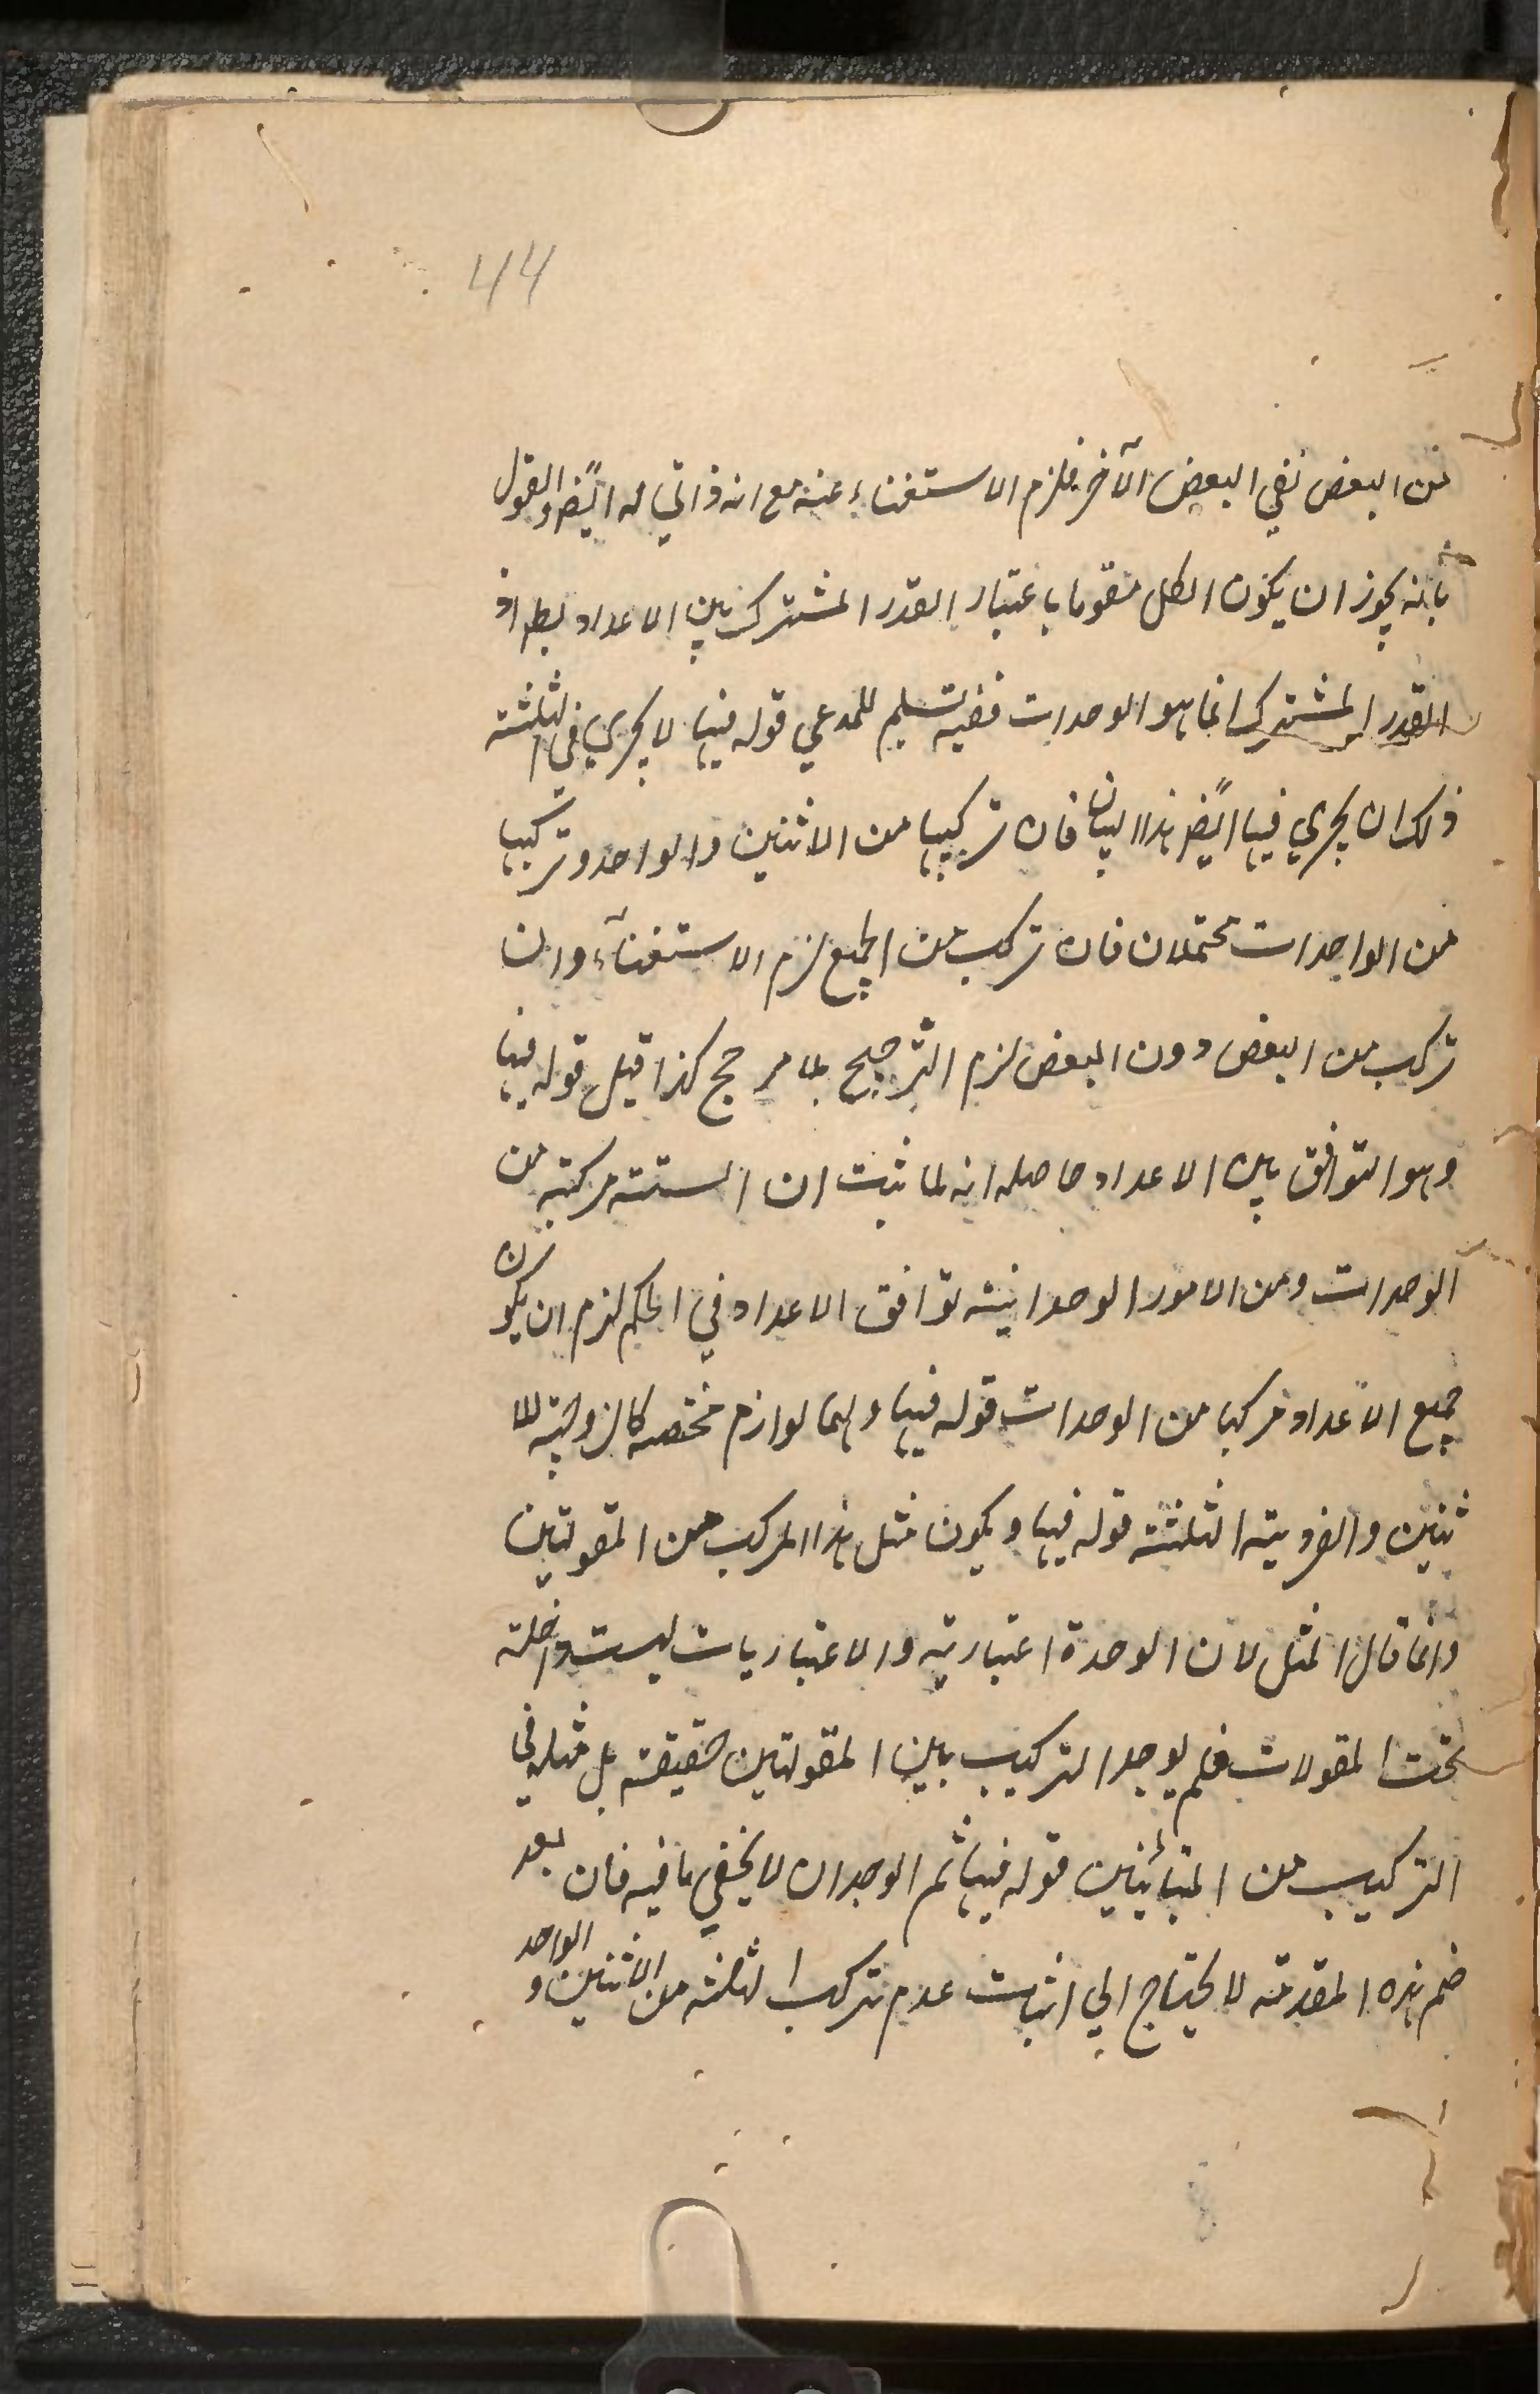 44
من البعض نفي البعض الآخر فلزم الاستغناء عنه مع انه ذاتي له ايضًا والقول
بأنه يجوز ان يكون الكل مقوما باعتبار القدر المشترك بين الاعداد بط اذ
القدر المشترك انما هو الوحدات ففيه تسليم للمدعي قوله فيها لا يجري في الثلثة
ذلك ان يجري فيها ايضًا هذا البيان فان تركيبها من الاثنين والواحد وتركيبها
من الواحدات محتملان فان تركب من الجميع لزم الاستغنآء وان
تركب من البعض دون البعض لزم الترجيح بلا مرجح كذا قيل قوله فيها
وهو التوافق بين الاعداد حاصله انه لما ثبت ان الستة مركبة من
الوحدات ومن الامور الوحدانية توافق الاعداد في الحكم لزم ان يكون
جميع الاعداد مركبا من الوحدات قوله فيها ولهما لوازم مختصه كالزوجية للا
ثنين والفردية الثلثة قوله فيها ويكون مثل هذا المركب من المقولتين
وانما قال المثل لان الوحدة اعتبارية والاعتباريات ليست داخلة
تحت المقولات فلم يوجد التركيب بين المقولتين حقيقة بل مثله في
التركيب من المتبائنين قوله فيها ثم الوجدان لا يخفي ما فيه فان بعد
ضم هذه المقدمة لا يحتاج الي اثبات عدم تركب الثلثة من الاثنين والواحد